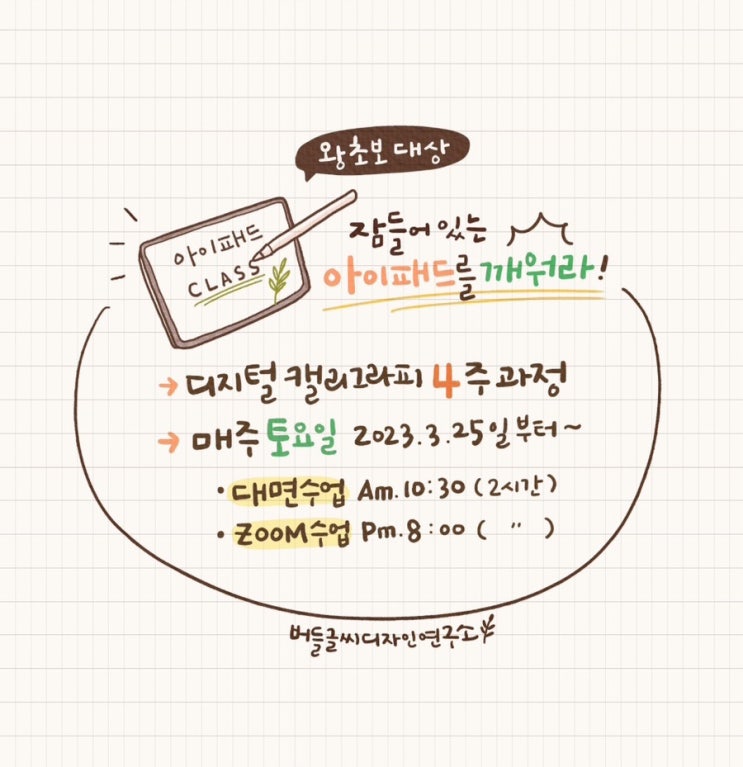 왕초보 대상
아이패드
CLASS
잠들어 있는
아이패드를 깨워라!
→ 디지털 캘리그라피 4주 과정
→ 매주 토요일 2023.3.25일부터~
• 대면수업 Am.10:30 (2시간)
• ZOOM수업 Pm.8:00 ( " )
버들글씨디자인연구소